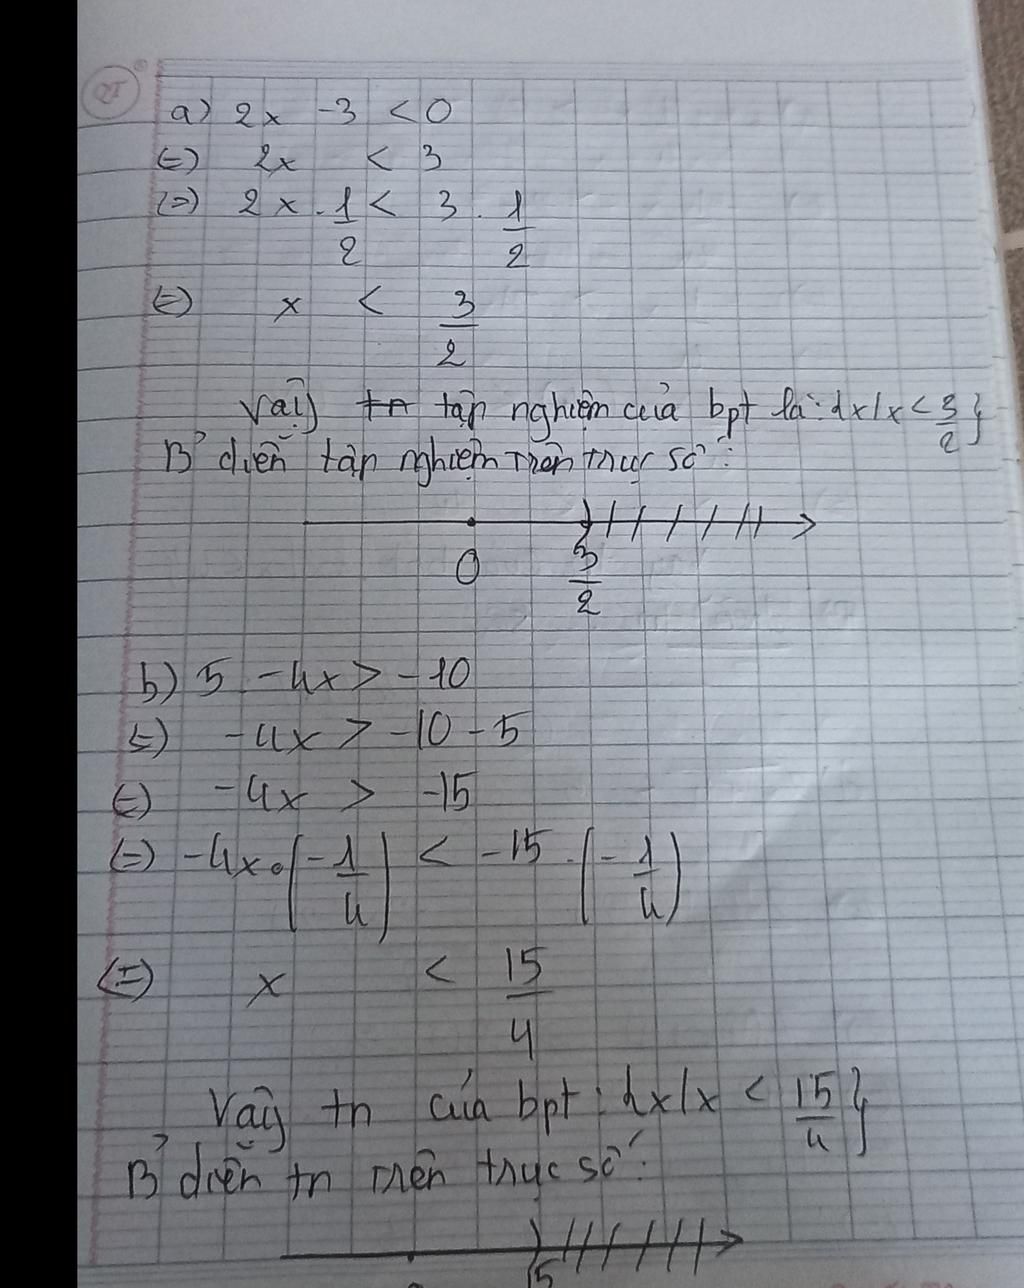 a) 2x - 3 < 0
(=) 2x < 3
(=) 2x . 1/2 < 3 . 1/2
(=) x < 3/2
Vậy tập nghiệm của bpt là: {x/x < 3/2}
B' diễn tập nghiệm trên trục số:
0 3/2
b) 5 - 4x > -10
(=) -4x > -10 - 5
(=) -4x > -15
(=) -4x . (-1/4) < -15 . (-1/4)
(=) x < 15/4
Vậy tn của bpt: {x/x < 15/4}
B' diễn tn trên trục số:
15